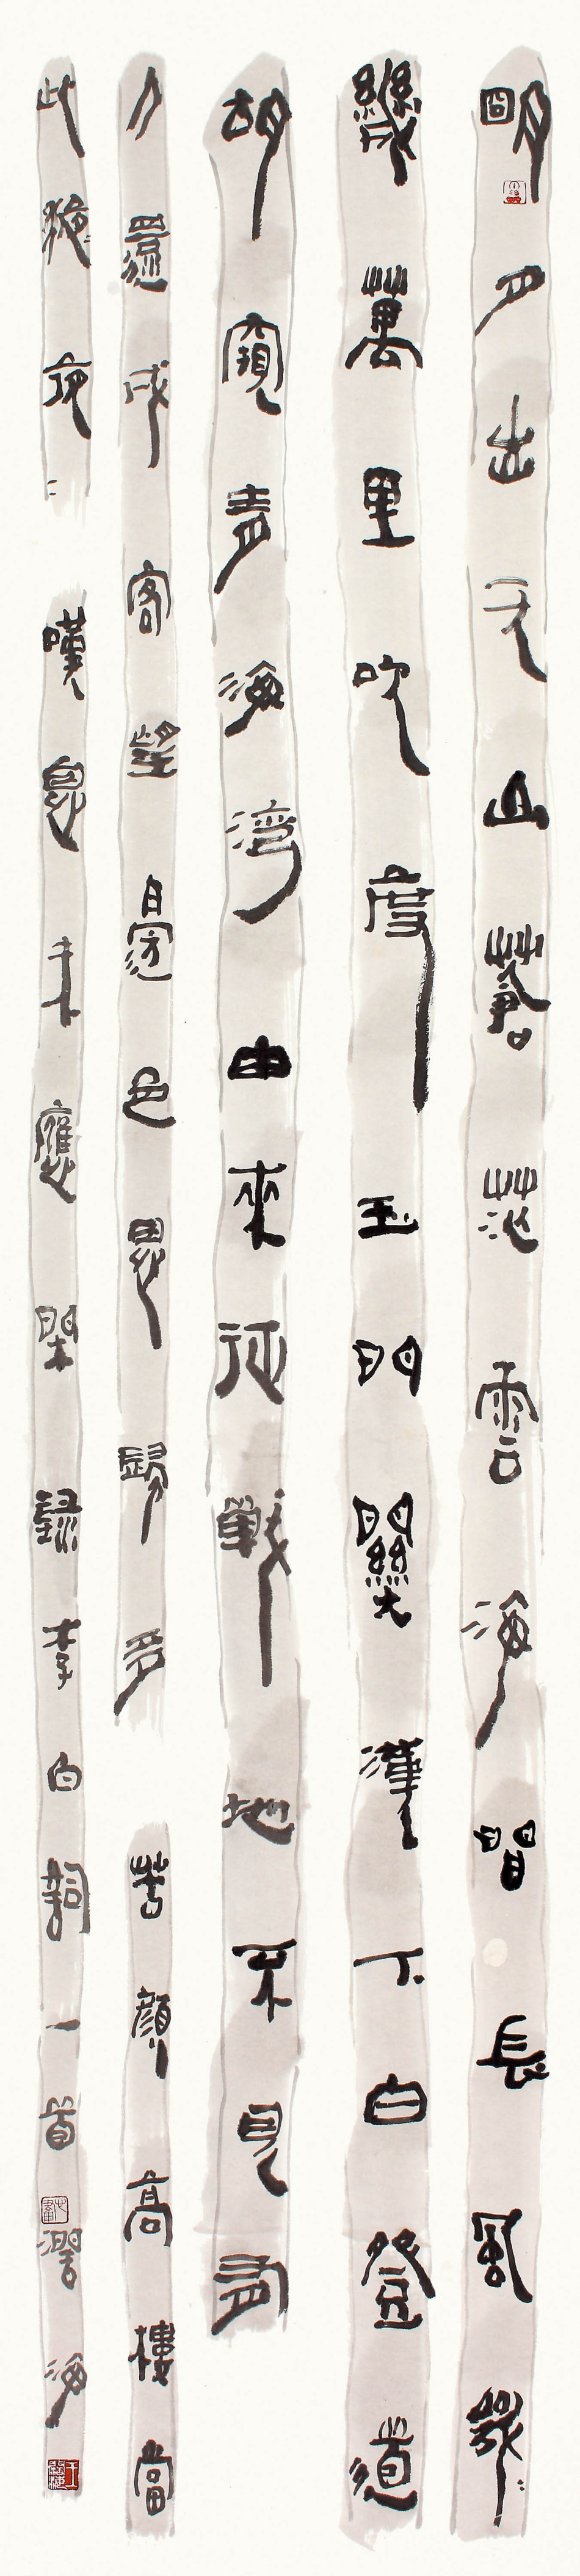 明月出天山蒼茫雲海間長風
幾萬里吹度玉門關漢下白登道
胡窺青海灣由來征戰地不見有
人還戍客望邊色思歸多苦顏高樓當
此夜嘆息未應閑錄李白詞一首海